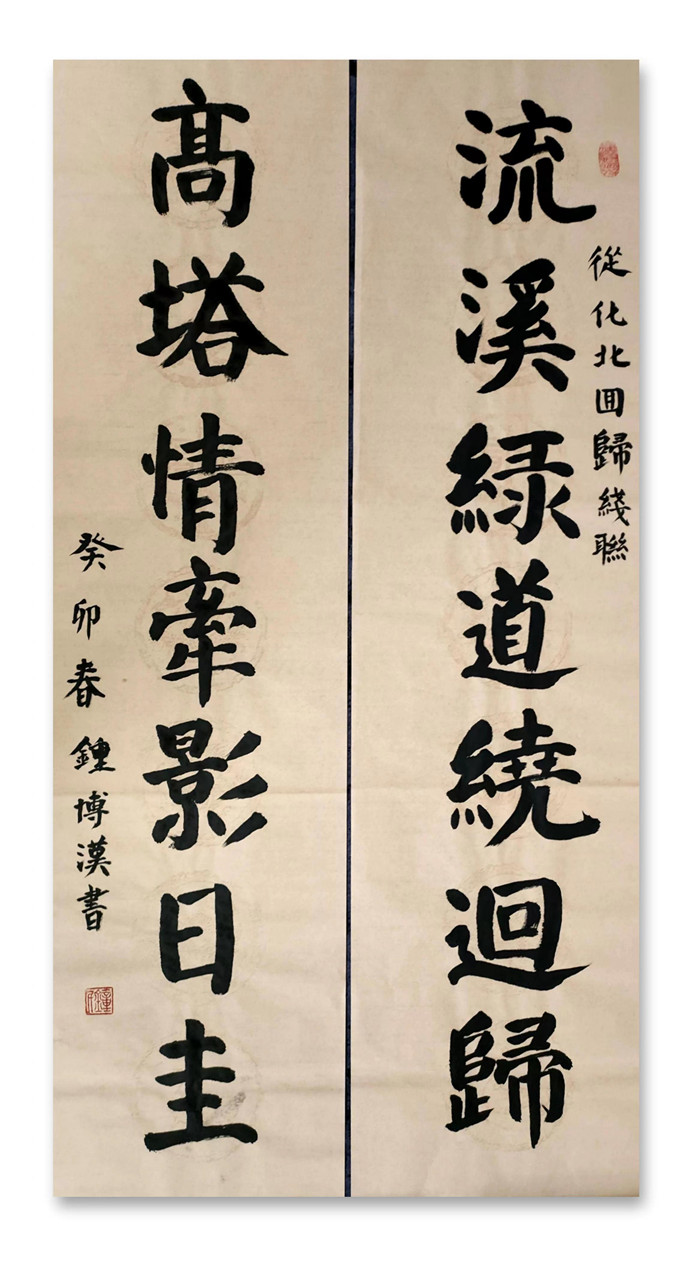 從化北囬歸綫聯
流溪緑道繞迴歸
髙塔情牽影日圭
癸卯春鍾博漢書